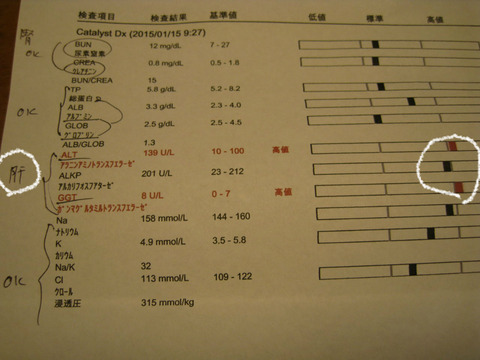 検査項目 検査結果 基準値 低値 標準 高値
Catalyst Dx (2015/01/15 9:27)
腎 OK
BUN 12 mg/dL 7 - 27
尿素窒素
CREA 0.8 mg/dL 0.5 - 1.8
クレアチニン
BUN/CREA 15
TP 5.8 g/dL 5.2 - 8.2
総蛋白
OK
ALB 3.3 g/dL 2.3 - 4.0
アルブミン
GLOB 2.5 g/dL 2.5 - 4.5
グロブリン
ALB/GLOB 1.3
肝
ALT 139 U/L 10 - 100 高値
アラニンアミノトランスフェラーゼ
ALKP 201 U/L 23 - 212
アルカリフォスファターゼ
GGT 8 U/L 0 - 7 高値
ガンマグルタミルトランスフェラーゼ
Na 158 mmol/L 144 - 160
ナトリウム
K 4.9 mmol/L 3.5 - 5.8
カリウム
OK
Na/K 32
Cl 113 mmol/L 109 - 122
クロール
浸透圧 315 mmol/kg